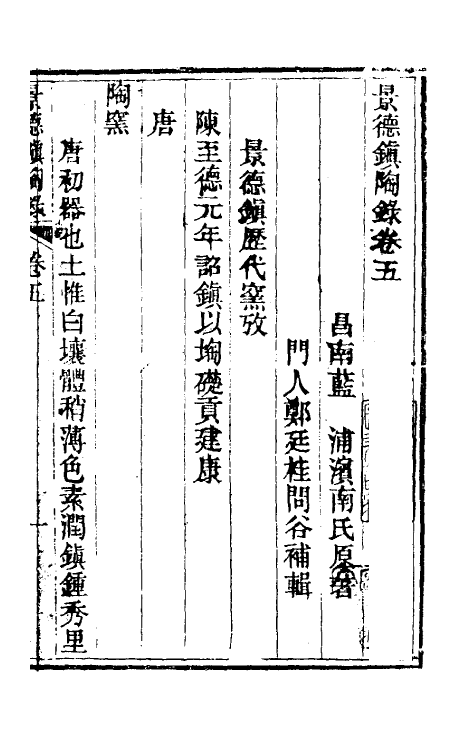 景德鎮陶錄卷五
昌南藍 浦濱南氏原著
門人鄭廷桂問谷補輯
景德鎮歷代窯攷
陳至德元年詔鎮以陶礎貢建康
唐
陶窯
唐初器也土惟白壤體稍薄色素潤鎮鍾秀里
景德鎮陶錄 卷五